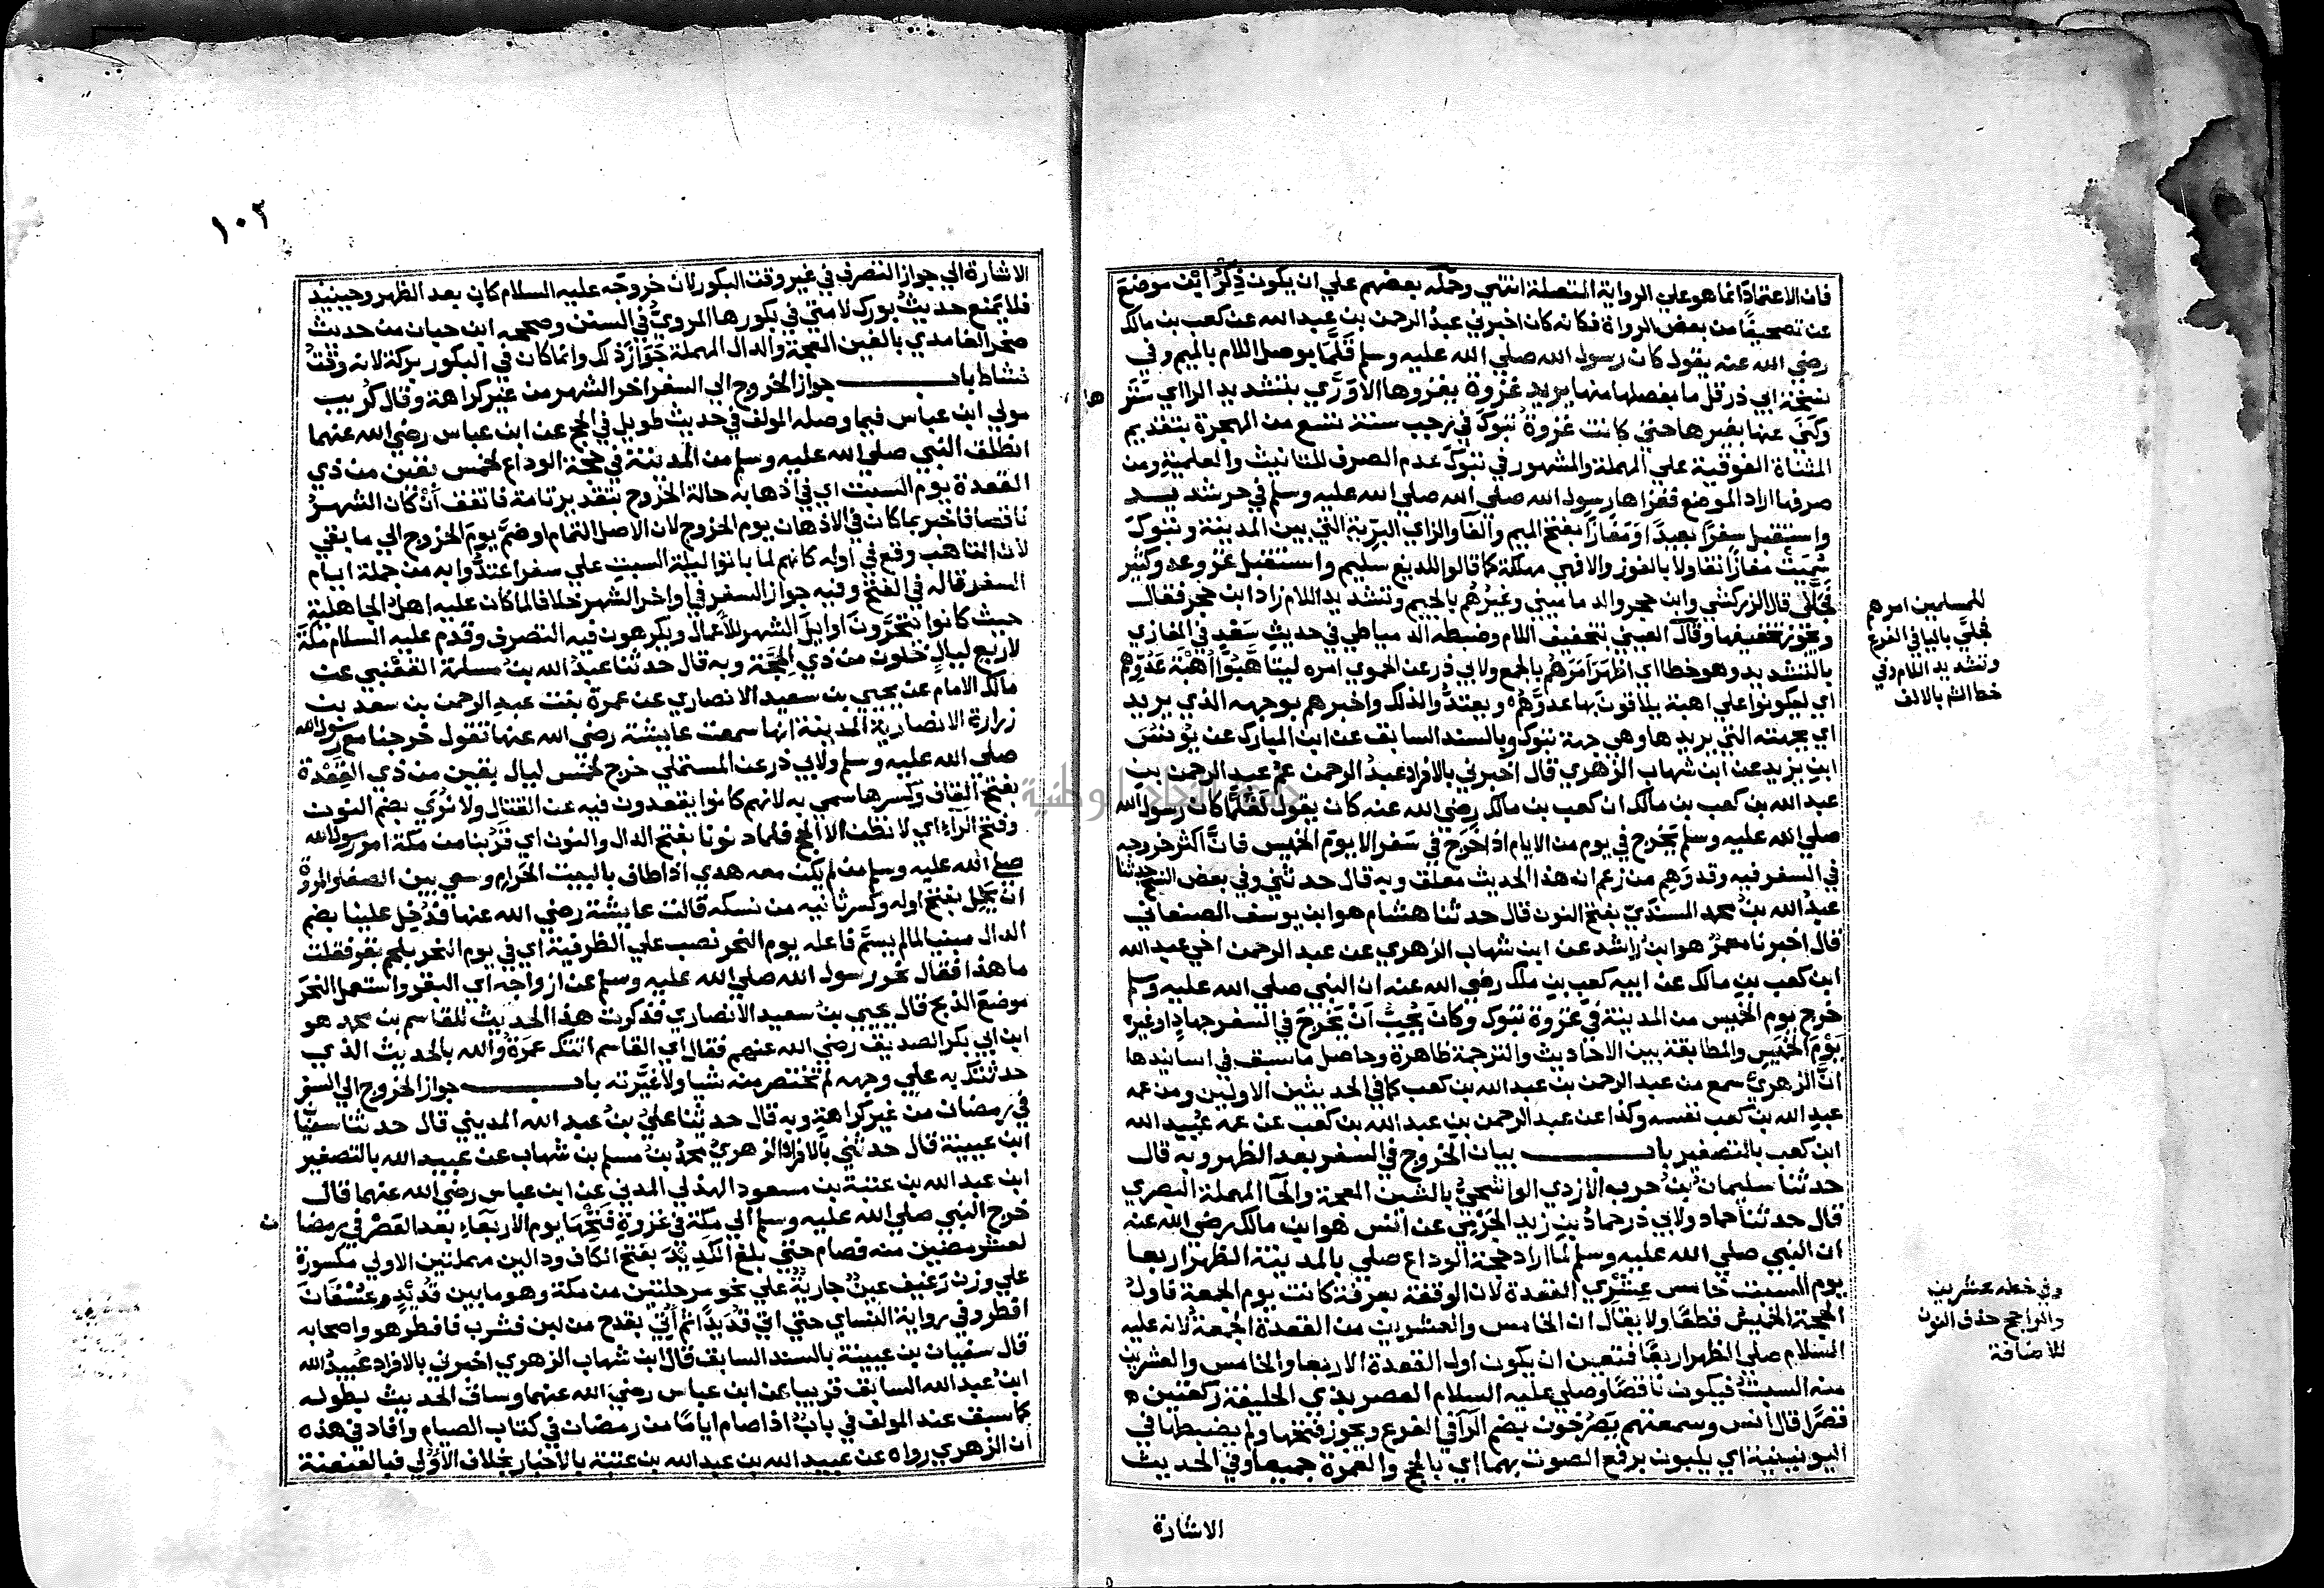 فان الاعتماد انما هو علي الرواية المتصلة انتهي وحمله بعضهم علي ان يكون ذكر ابن موضع
عن تصحيفا من بعض الرواة فكانه كان اخبرني عبد الرحمن بن عبد الله عن كعب بن مالك
رضي الله عنه يقول كان رسول الله صلي الله عليه وسلم قلما بوصل اللام بالميم وفي
نسخة ابي ذر قل ما بفصلها منها يريد غزوة يغزوها الا ورّي بتشديد الرا اي ستر
وكني عنها بغيرها حتي كانت غزوة تبوك في رجب سنة تسع من الهجرة بتقديم
المثناة الفوقية علي المهملة والمشهور في تبوك عدم الصرف للتانيث والعلمية ومن
صرفها اراد الموضع فغزاها رسول الله صلي الله صلي الله عليه وسلم في حر شديد
واستقبل سفرا بعيدا ومفازا بفتح الميم والفا والزاي البرية التي بين المدينة وتبوك
سميت مفازا تفاولا بالفوز والا فهي مهلكة كما قالوا للديغ سليم واستقبل غزو عدو كثير
فجلّي قال الزركشي وابن حجر والدماميني وغيرهم بالجيم وتشديد اللام زاد ابن حجر فقال
ويجوز تخفيفها وقال العيني بتخفيف اللام وضبطه الدمياطي في حديث سعد في المغازي
بالتشديد وهو خطا اي اظهر امرهم بالجمع ولابي ذر عن الحموي امره ليتاهبوا اهبة عدوهم
اي ليكونوا علي اهبة يلاقون بها عدوهم ويعتدوا لذلك واخبرهم بوجهه الذي يريد
اي بجهته التي يريدها وهي جهة تبوك وبالسند السابق عن ابن المبارك عن يونس
ابن يزيد عن ابن شهاب الزهري قال اخبرني بالافراد عبد الرحمن عم عبد الرحمن بن
عبد الله بن كعب بن مالك ان كعب بن مالك رضي الله عنه كان يقول لقلما كان رسول الله
صلي الله عليه وسلم يخرج في يوم من الايام اذا خرج في سفر الا يوم الخميس فان اكثر خروجه
في السفر فيه وقد وهم من زعم ان هذا الحديث معلق وبه قال حدثني وفي بعض النسخ حدثنا
عبد الله بن محمد المسندي بفتح النون قال حدثنا هشام هو ابن يوسف الصنعاني
قال اخبرنا معمر هو ابن راشد عن ابن شهاب الزهري عن عبد الرحمن اخي عبد الله
ابن كعب بن مالك عن ابيه كعب بن ملك رضي الله عنه ان النبي صلي الله عليه وسلم
خرج يوم الخميس من المدينة في غزوة تبوك وكان يحب ان يخرج في السفر جهاد اوغيره
يوم الخميس والمطابقة بين الاحاديث والترجمة ظاهرة وحاصل ما سبق في اسانيدها
ان الزهري سمع من عبد الرحمن بن عبد الله بن كعب كما في الحديثين الاولين ومن عمه
عبد الله بن كعب نفسه وكذا عن عبد الرحمن بن عبد الله بن كعب عن عمه عبيد الله
ابن كعب بالتصغير باب بيان الخروج في السفر بعد الظهر وبه قال
حدثنا سليمان بن حرب الازدي الواشحي بالشين المعجمة والحا المهملة البصري
قال حدثنا حماد ولابي ذر حماد بن زيد الجرمي عن انس هو ابن مالك رضي الله عنه
ان النبي صلي الله عليه وسلم لما اراد حجة الوداع صلي بالمدينة الظهر اربعا
يوم السبت خامس عشري القعدة لان الوقفة بعرفة كانت يوم الجمعة فاول
الحجة الخميس قطعا ولا يقال ان الخامس والعشرين من القعدة الجمعة لانه عليه
السلام صلي الظهر اربعا فتعين ان يكون اول القعدة الاربعا والخامس والعشرين
منه السبت فيكون ناقصا وصلي عليه السلام العصر بذي الحليفة ركعتين
قصرا قال انس وسمعتهم يصرخون بضم الرآ في الفرع ويجوز فتحها ولم يضبطها في
اليونينية اي يلبون برفع الصوت بهما اي بالحج والعمرة جميعا وفي الحديث
الاشارة
ها
للمسلمين امرهم
فجلي باليا في الفرع
وتشديد اللام وفي
خط الش بالالف
وفي خطه عشرين
والراجح حذف النون
للاضافة
١٠٢
الاشارة الي جواز التصرف في غير وقت البكور لان خروجه عليه السلام كان بعد الظهر وحينيذ
فلا يمنع حديث بورك لامتي في بكورها المروي في السنن وصححه ابن حبان من حديث
صخر الغامدي بالغين المعجمة والدال المهملة جواز ذلك وانما كان في البكور بركة لانه وقت
نشاط باب جواز الخروج الي السفر اخر الشهر من غير كراهة وقال كريب
مولي ابن عباس فيما وصله المولف في حديث طويل في الحج عن ابن عباس رضي الله عنهما
انطلق النبي صلي الله عليه وسلم من المدينة في حجة الوداع لخمس بقين من ذي
القعدة يوم السبت اي في اذهابه حالة الخروج بتقدير تامة فاتفق ان كان الشهر
ناقصا فاخبر بما كان في الاذهان يوم الخروج لان الاصل التمام او ضم يوم الخروج الي ما بقي
لان التاهب وقع في اوله كانهم لما باتوا ليلة السبت علي سفر اعتدوا به من جملة ايام
السفر قاله في الفتح وفيه جواز السفر في اواخر الشهر خلافا لما كان عليه اهل الجاهلية
حيث كانوا يتحرون اوايل الشهر للاعمال ويكرهون فيه التصرف وقدم عليه السلام مكة
لاربع ليال خلون من ذي الحجة وبه قال حدثنا عبد الله بن مسلمة القعنبي عن
مالك الامام عن يحيي بن سعيد الانصاري عن عمرة بنت عبد الرحمن بن سعد بن
زرارة الانصارية المدنية انها سمعت عايشة رضي الله عنها تقول خرجنا مع رسول الله
صلي الله عليه وسلم ولابي ذر عن المستملي خرج لخمس ليال بقين من ذي القعدة
بفتح القاف وكسرها سمي به لانهم كانوا يقعدون فيه عن القتال ولا نري بضم النون
وفتح الراء اي لا نظن الا الحج فلما دنونا بفتح الدال والنون اي قربنا من مكة امر رسول الله
صلي الله عليه وسلم من لم يكن معه هدي اذا طاف بالبيت الحرام وسعي بين الصفا والمروة
ان يحل بفتح اوله وكسر ثانيه من نسكه قالت عايشة رضي الله عنها فدخل علينا بضم
الدال مبنيا لما لم يسم فاعله يوم النحر نصب علي الظرفية اي في يوم النحر بلحم بقر فقلت
ما هذا فقال نحر رسول الله صلي الله عليه وسلم عن ازواجه اي البقر واستعمل النحر
موضع الذبح قال يحيي بن سعيد الانصاري فذكرت هذا الحديث للقاسم بن محمد هو
ابن ابي بكر الصديق رضي الله عنهم فقال اي القاسم اتتك عمرة والله بالحديث الذي
حدثتك به علي وجهه لم تختصر منه شيا ولا غيرته باب جواز الخروج الي السفر
في رمضان من غير كراهة وبه قال حدثنا علي بن عبد الله المديني قال حدثنا سفيا
ن
ابن عيينة قال حدثني بالافراد الزهري محمد بن مسلم بن شهاب عن عبيد الله بالتصغير
ابن عبد الله بن عتبة بن مسعود الهذلي المدني عن ابن عباس رضي الله عنهما قال
خرج النبي صلي الله عليه وسلم الي مكة في غزوة فتحها يوم الاربعاء بعد العصر في رمضا
لعشر مضين منه فصام حتي بلغ الكديد بفتح الكاف ودالين مهملتين الاولي مكسورة
علي وزن رغيف عين جارية علي نحو مرحلتين من مكة وهو ما بين قديد وعسفان
افطر وفي رواية النساي حتي اتي قديدا ثم اتي بقدح من لبن فشرب فافطر هو واصحابه
قال سفيان بن عيينة بالسند السابق قال ابن شهاب الزهري اخبرني بالافراد عبيد الله
ابن عبد الله السابق قريبا عن ابن عباس رضي الله عنهما وساق الحديث بطوله
كما سبق عند المولف في باب اذا صام اياما من رمضان في كتاب الصيام وافاد في هذه
ان الزهري رواه عن عبيد الله بن عبد الله بن عتبة بالاخبار بخلاف الاولي فبالعنعنة